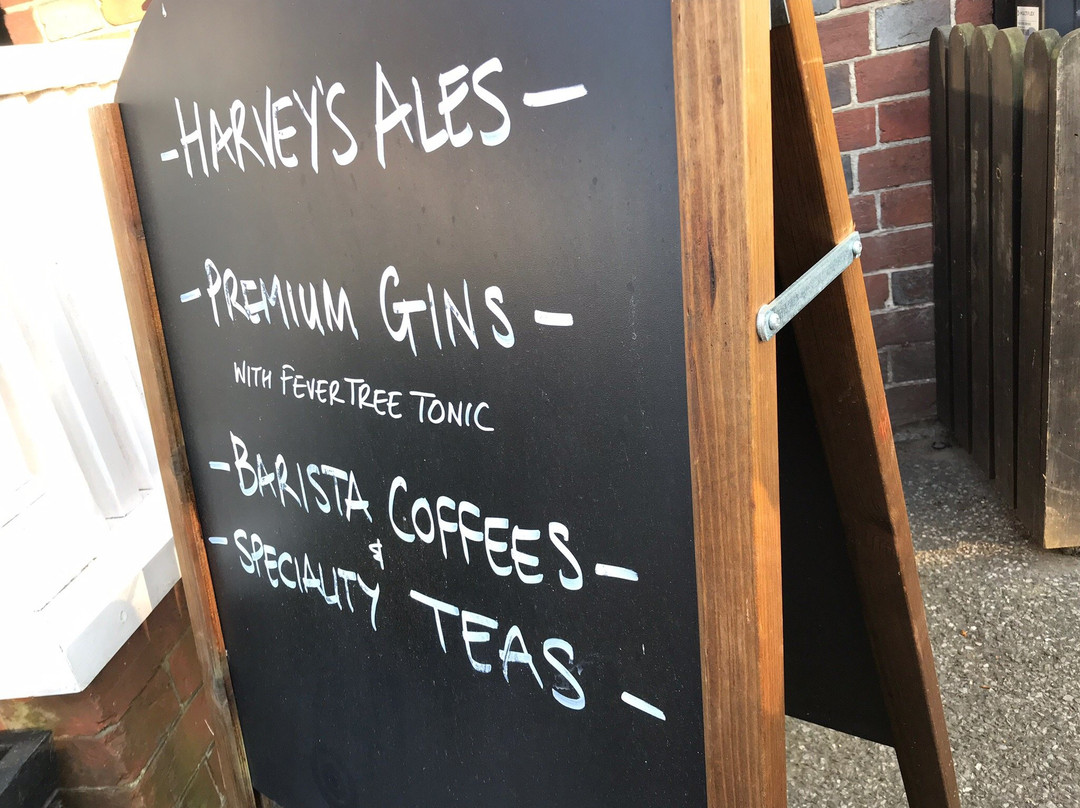 -HARVEY'S ALES-
-PREMIUM GINS-
WITH FEVERTREE TONIC
-BARISTA COFFEES-
&
-SPECIALITY TEAS-